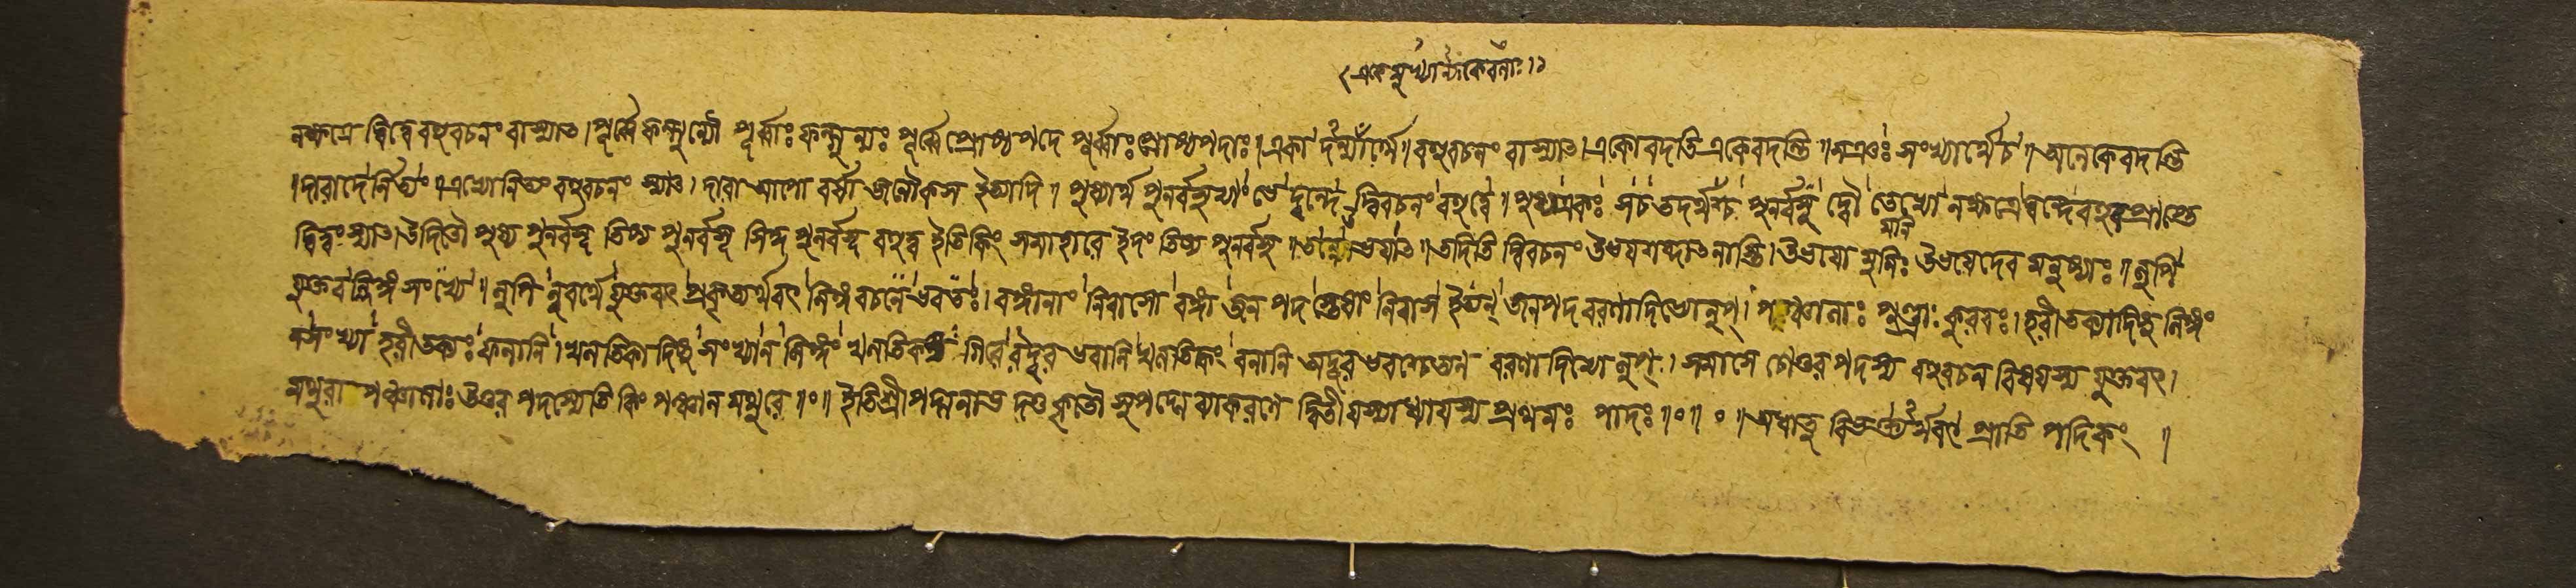 (একেমুখ্যান্যকেবলাঃ।)
নক্ষত্রে দ্বিত্বে বহুবচনং বাস্যাত। পূর্ব্বে ফল্গুন্যৌ পূর্ব্বাঃ ফল্গুন্যঃ পূর্ব্বে প্রোষ্ঠপদে পূর্ব্বাঃ প্রোষ্ঠপদাঃ। বহুবচনং বাস্যাত। একোবদতি একেবদন্তি॥ সংখ্যার্থেচ॥ অনেকেবদন্তি
॥দারাদেনিত্যং॥ এভ্যোনিত্যং বহুবচনং স্যাত। দারা আপো বর্ষা জলৌকস ইত্যাদি॥ পুষ্যার্থ পুনর্বসুভ্যাং ভে দ্বন্দে দ্বিবচনং বহুত্বে॥ পুষ্যএকঃ সচ তদর্থশ্চ পুনর্বসু দ্বৌ তেভ্যো নক্ষত্রেদ্বন্দেবহুত্বপ্রাপ্তে
দ্বিত্বং স্যাত। উদিতৌ পুষ্য পুনর্বসূ তিষ্য পুনর্বসূ সিদ্ধ পুনর্বসূ বহুত্ব ইতিকিং সমাহারে ইদং তিষ্য পুনর্বসু॥ তদিতি দ্বিবচনং উভয়শব্দাত নাস্তি। উভয়ো মুনিঃ উভয়েদেব মনুষ্যাঃ॥ লুপি
যুক্তবল্লিঙ্গ সংখ্যে॥ লুপি লুবর্থে যুক্তবৎ প্রকৃত্যর্থবৎ লিঙ্গ বচনে ভবতঃ। বঙ্গানাং নিবাসো বঙ্গা জনপদ স্তেষাং নিবাস ইত্যন্ জনপদ বরণাদিভ্যোলুপ্। পঞ্চালাঃ পুণ্ড্রাঃ কুরবঃ। হরীতক্যাদিষু লিঙ্গং
নসংখ্যা হরীতক্যঃ ফলানি। খলতিকাদিষু সংখ্যান লিঙ্গং খলতিকস্য গিরেরদূর ভবানি খলতিকং বনানি অদূর ভবশ্চেত্যন বরণাদিভ্যো লুপ্। সমাসে চোত্তর পদস্য বহুবচন বিষয়স্য যুক্তবৎ।
মথুরা পঞ্চালাঃ উত্তর পদস্যেতি কিং পঞ্চাল মথুরে॥০॥ ইতিশ্রীপদ্মনাভ দত্ত কৃতৌ সুপদ্মে ব্যাকরণে দ্বিতীয়স্যাধ্যায়স্য প্রথমঃ পাদঃ॥০॥০॥ অধাতু বিভক্ত্যর্থবৎ প্রাতি পদিকং॥